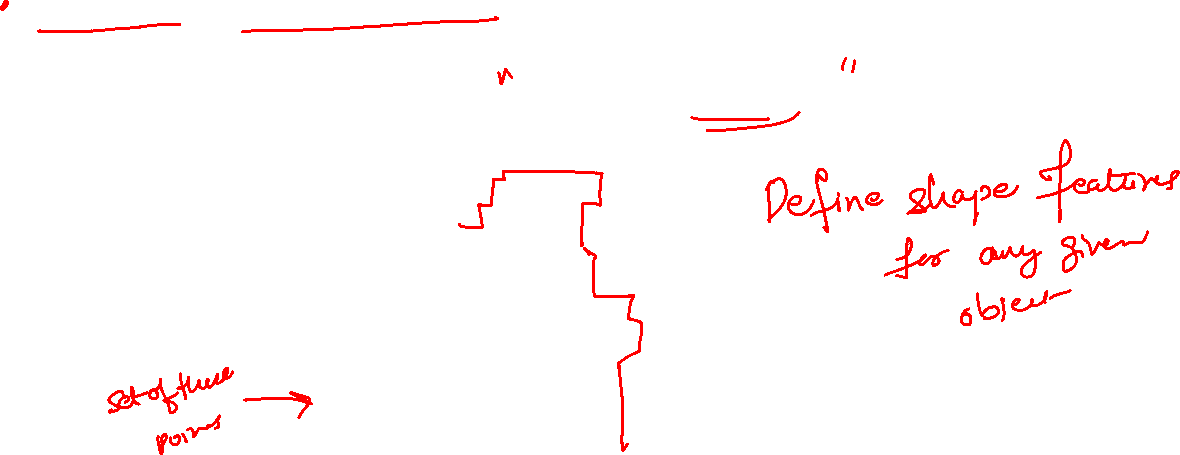 Define shape features
for any given
object
set of these
points